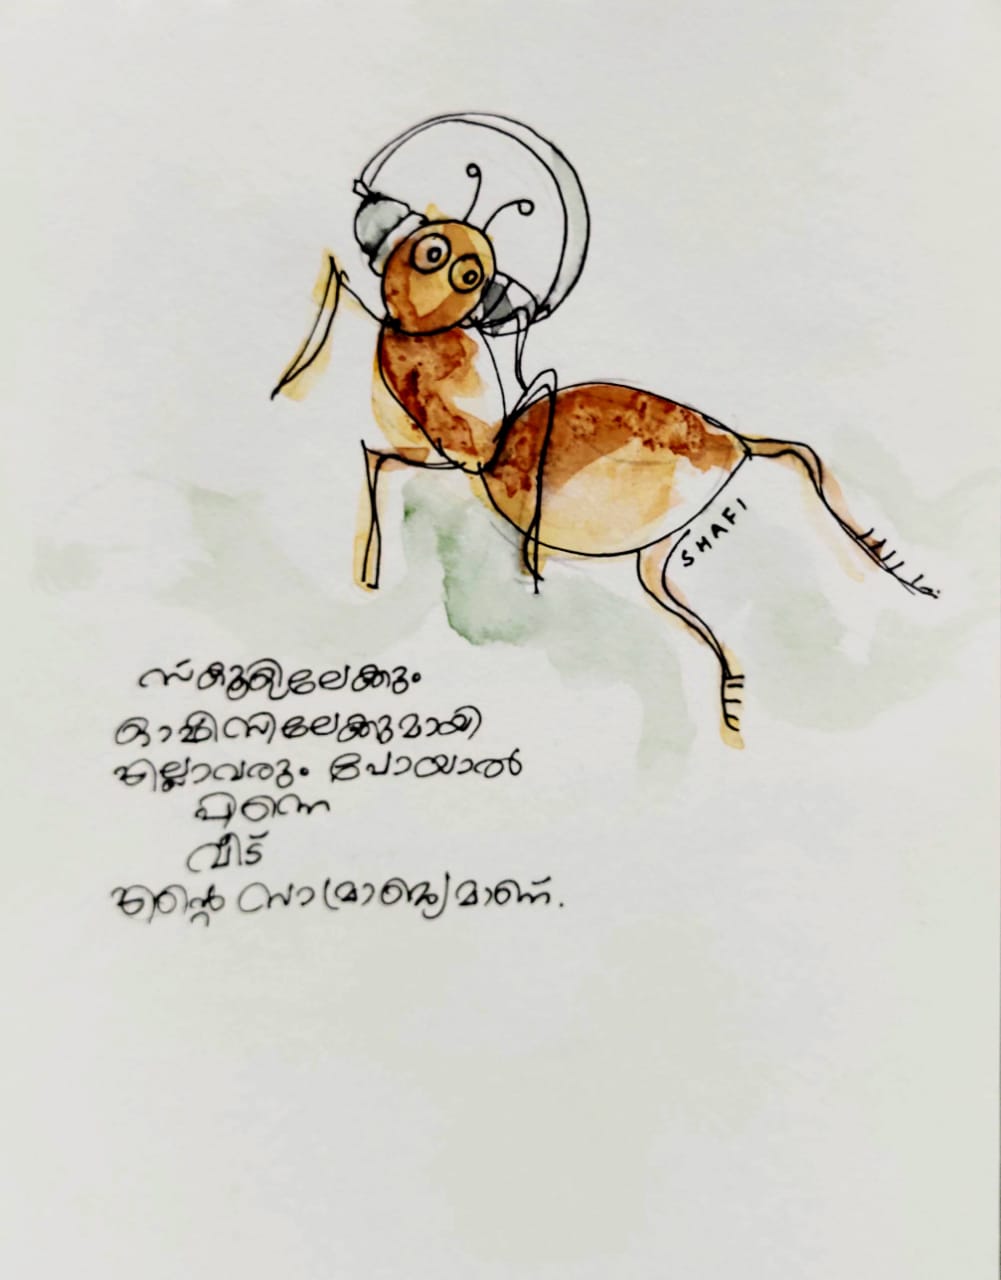 SHAFI
സ്കൂളിലേക്കും
ഓഫീസിലേക്കുമായി
എല്ലാവരും പോയാൽ
പിന്നെ
വീട്
എന്റെ സാമ്രാജ്യമാണ്.